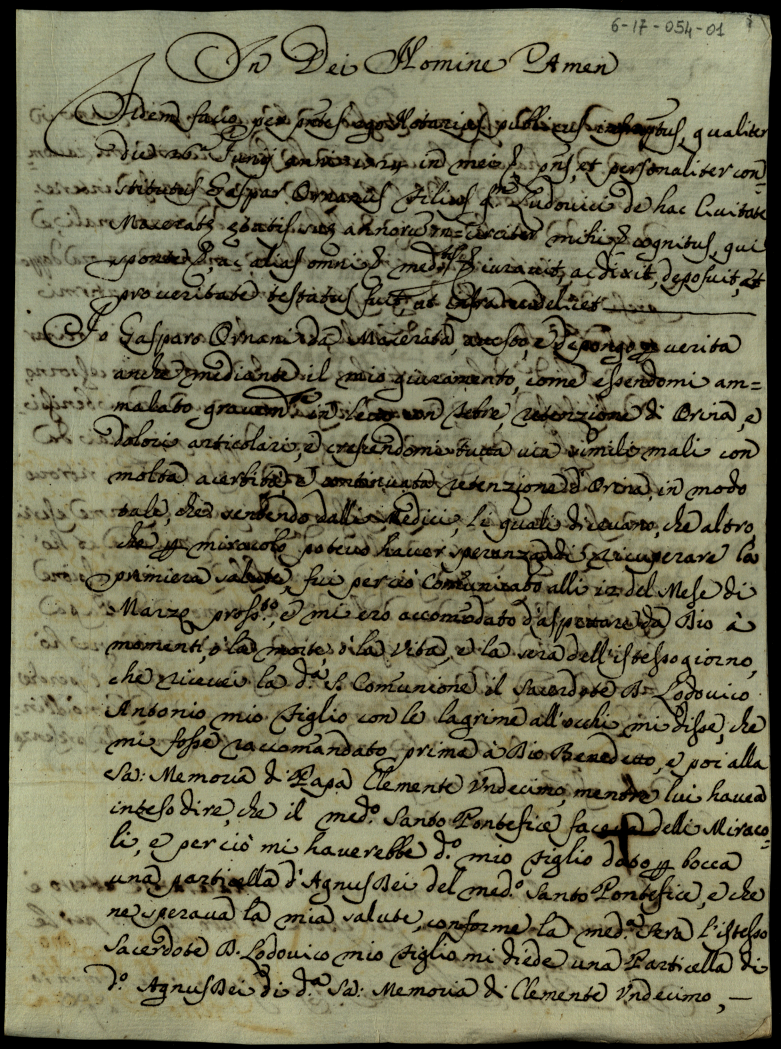 6-17-054-01
In Dei Nomine Amen
Fidem facio per pntes ego Notarius publicus infraptus, qualiter
die 26 Junij anni in mei p pns, et personaliter con=
stitutus Gaspar Ornanus filius q Ludovici de hac Civitate
Maceratę ętatis suę annorum circiter mihi cognitus, qui
sponte p ac alias omni iuravit, ac dixit, deposuit, et
pro veritate testatus fuit, ut
Io Gasparo Ornani da Macerata, attesto, e depongo p verita
anche mediante il mio giuramento, come essendomi am=
malato gravemte in letto con febre, retenzione di Orina, e
dolori articolari, e crescendomi tutta via simili mali con
molta acerbità e continuata retenzione d'Orina, in modo
tale, che sentendo dalli Medici, li quali dicevano, che altro
che p miracolo potevo haver speranza di ricuperare la
primiera salute, fui perciò Comunicato alli 12 del Mese di
Marzo prossto, e mi ero accomodato d'aspettare da Dio à
momenti, ò la morte, ò la Vita, e la sera dell'istesso giorno,
che ricevei la da S. Comunione il Sacerdote D. Lodovico
Antonio mio figlio con le lagrime all'occhi mi disse, che
mi fosse raccomandato prima à Dio Benedetto, e poi alla
Sa: Memoria di Papa Clemente Undecimo, mentre lui haveva
inteso dire, che il medo Santo Pontefice faceva delli Miraco-
li, e perciò mi haverebbe do mio figlio dato p bocca
una particella d'Agnus Dei del medo Santo Pontefice, e che
ne sperava la mia salute, conforme la meda sera l'istesso
Sacerdote D. Lodovico mio figlio mi diede una Particella di
do Agnus Dei di da Sa: Memoria di Clemente Undecimo, —